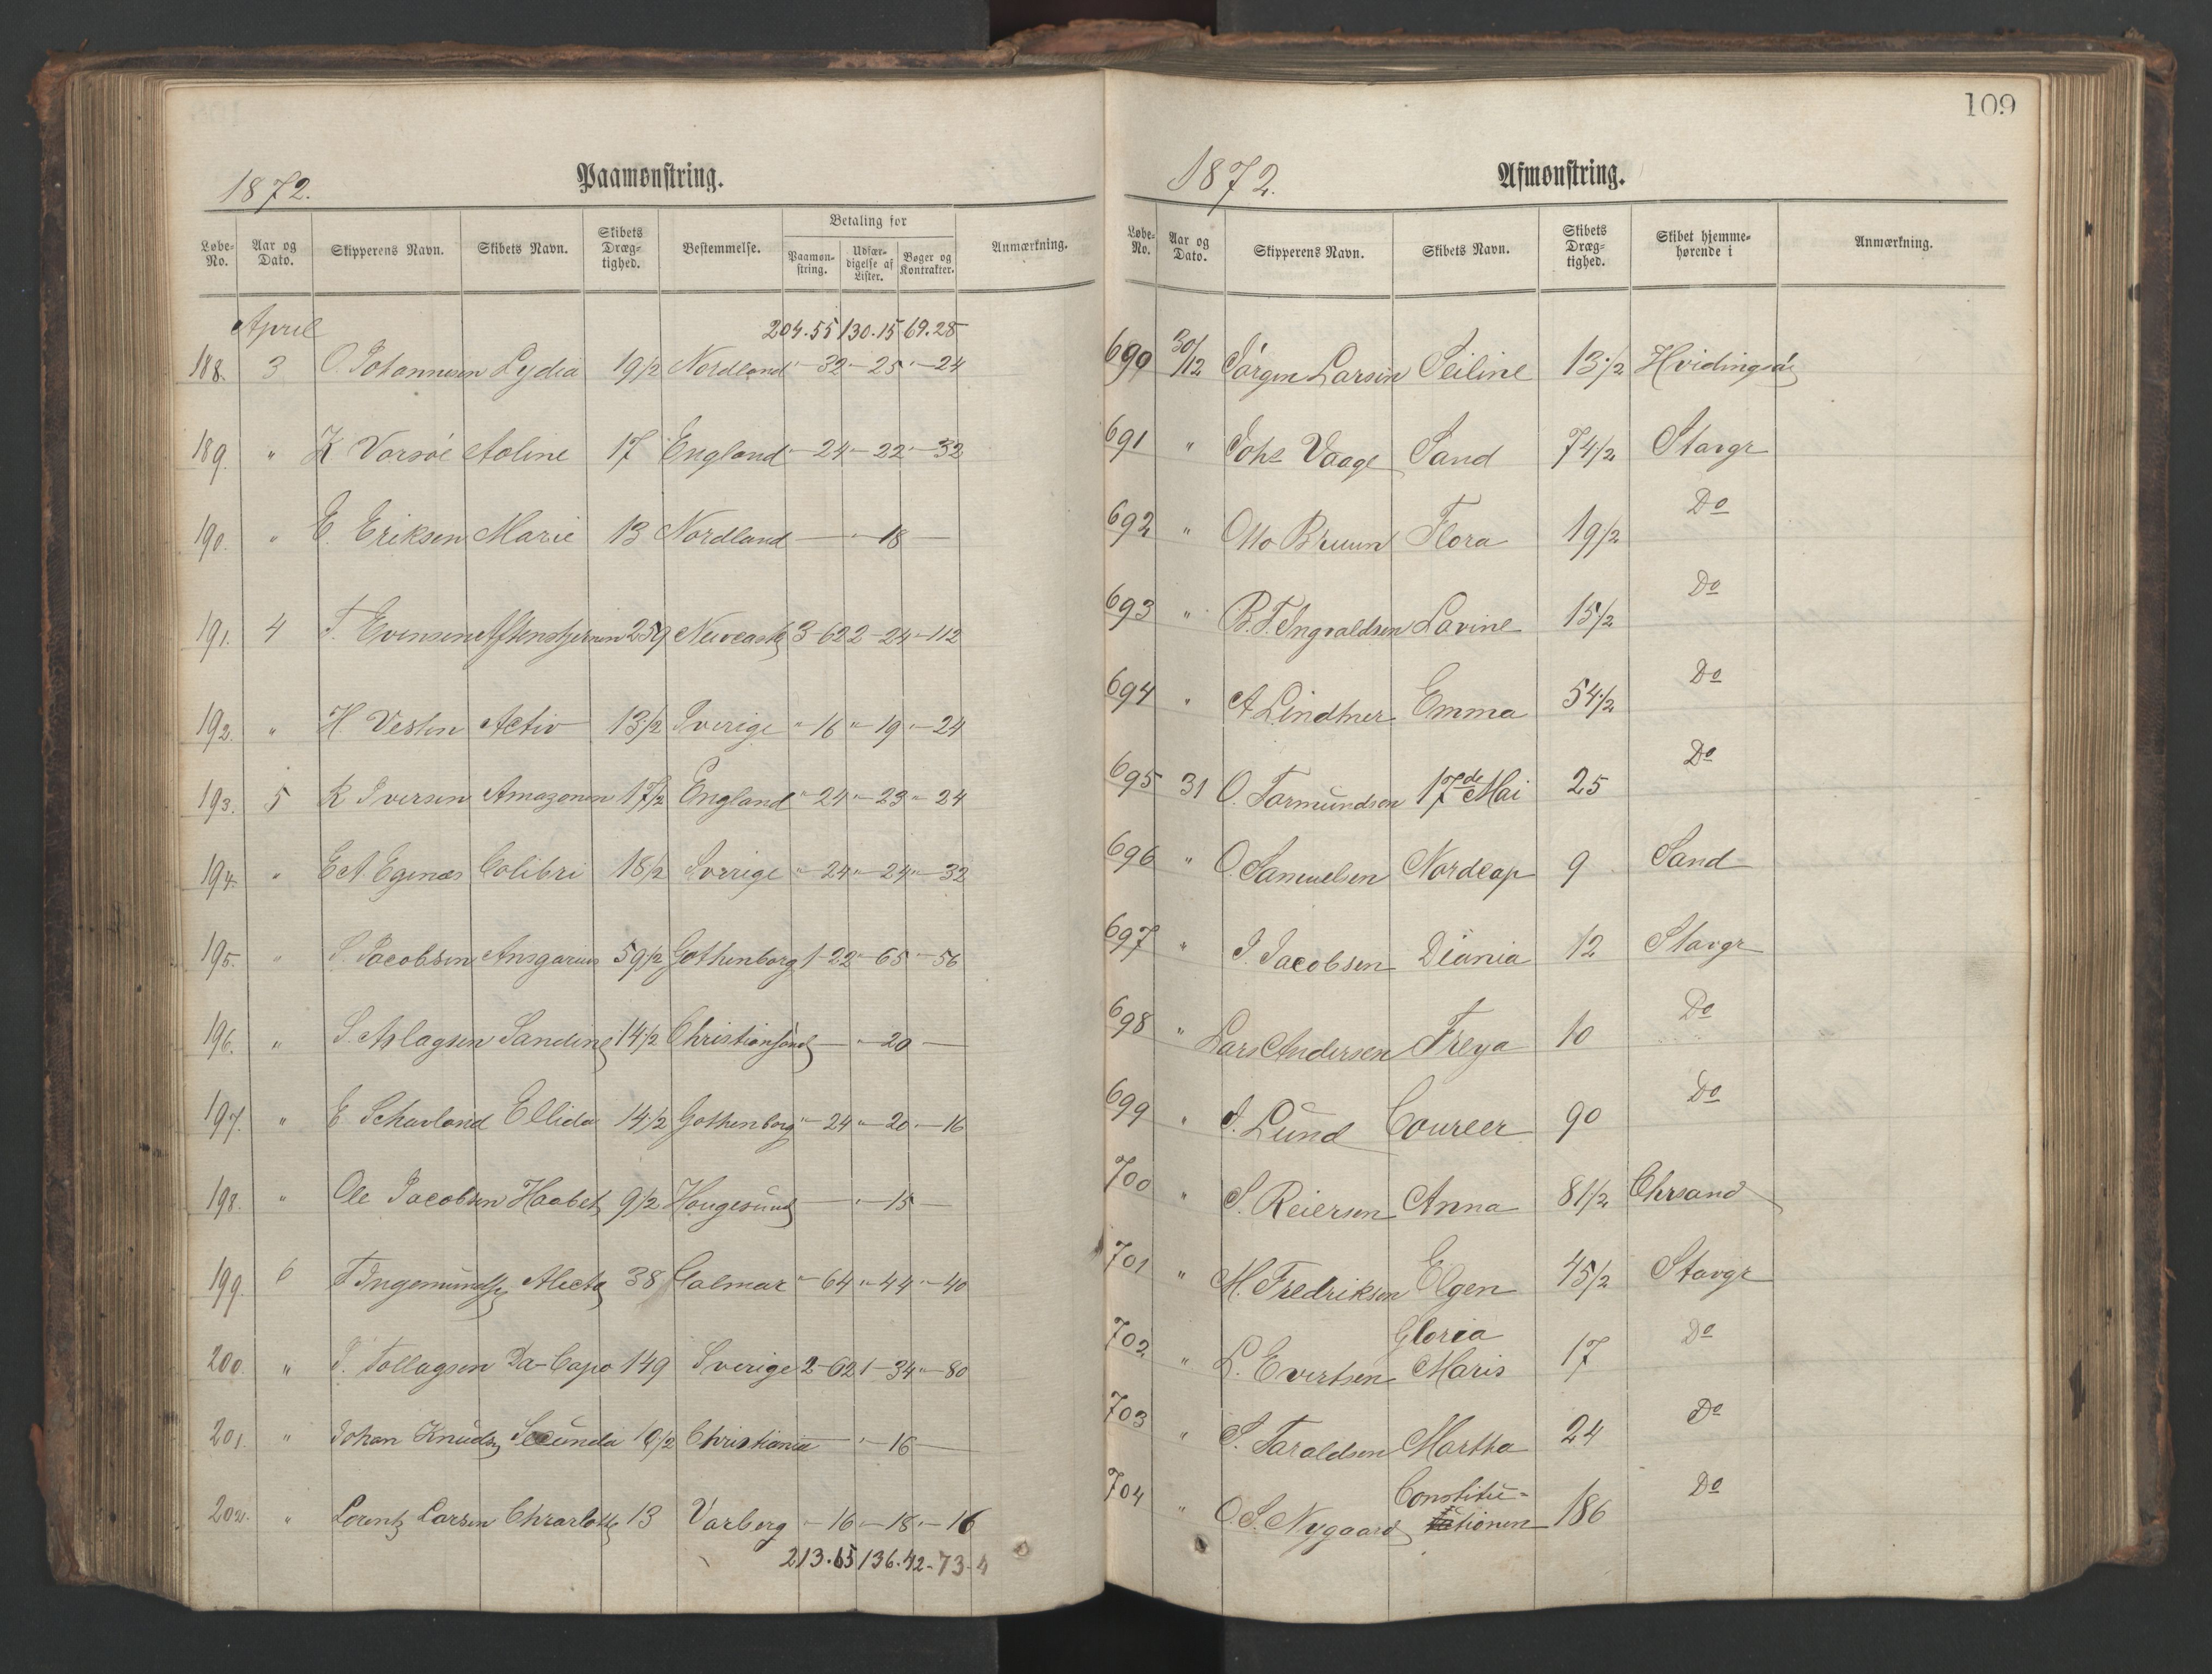 1872. Paamønstring.
Løbe-No. Aar og Dato. Skipperens Navn. Skibets Navn. Skibets Dræg-tighed. Bestemmelse. Betaling for Paamøn-string. Udfær-digelse af Lister. Bøger og Kontrakter. Anmærkning.
April 204.55 130.15 69.28
188. 3 O. Johannesen Lydia 19 1/2 Nordland " - 32 " - 25 " - 24
189. " K Vorsøe Aoline 17 England " - 24 " - 22 " - 32
190. " E. Eriksen Marie 13 Nordland — " - 18 —
191. 4 T. Evensen Aftenstjernen 259 Newcastle 3 - 62 2 - 24 - 112
192. " H Vesten Activ 13 1/2 Sverige " - 16 " - 19 " - 24
193. 5 K Iversen Amazonen 17 1/2 England " - 24 " - 23 " - 24
194. " E A. Egenæs Colibri 18 1/2 Sverige " - 24 " - 24 " - 32
195. " S. Jacobsen Ansgarius 59 1/2 Gothenborg 1 - 22 " - 65 " - 56
196. " S. Aslagsen Sandine 14 1/2 Christiansand — " - 20 —
197. " E Schavland Ellida 14 1/2 Gothenborg " - 24 " - 20 " - 16
198. " Ole Jacobsen Haabet 9 1/2 Haugesund — " - 15 —
199. 6 T Ingemundsen Alecto 38 Calmar " - 64 " - 44 " - 40
200. " T. Tollagsen Da-Capo 149 Sverige 2 - 62 1 - 34 " - 80
201. " Johan Knudsen Secunda 10 1/2 Christiania — " - 16 —
202. " Lorentz Larsen Chrarlotte 13 Varberg " - 16 " - 18 " - 16
213.65 136.42 - 73-4
109
1872. Afmønstring.
Løbe-No. Aar og Dato. Skipperens Navn. Skibets Navn. Skibets Dræg-tighed. Skibet hjemme-hørende i Anmærkning.
690 30/12 Jørgen Larsen Seiline 13 1/2 Hvidingsøe
691 " Johs Vaage Sand 74 1/2 Stavgr
692 " Otto Bruun Flora 19 1/2 Do
693 " B. T. Ingvaldsen Lavine 15 1/2 Do
694 " A Lindtner Emma 54 1/2 Do
695 31 O. Tormundson 17de Mai 25 Do
696 " O Samuelsen Nordcap 9 Sand
697 " J. Jacobsen Diania 12 Stavgr
698 " Lars Andersen Freya 10 Do
699 " J. Lund Coureer 90 Do
700 " S. Reiersen Anna 81 1/2 Chrsand
701 " M. Fredriksen Elgen 45 1/2 Stavgr
702 " L. Evertsen Gloria Maris 17 Do
703 " S. Taraldsen Martha 24 Do
704 " O. S. Nygaard Constitu-tionen 186 Do